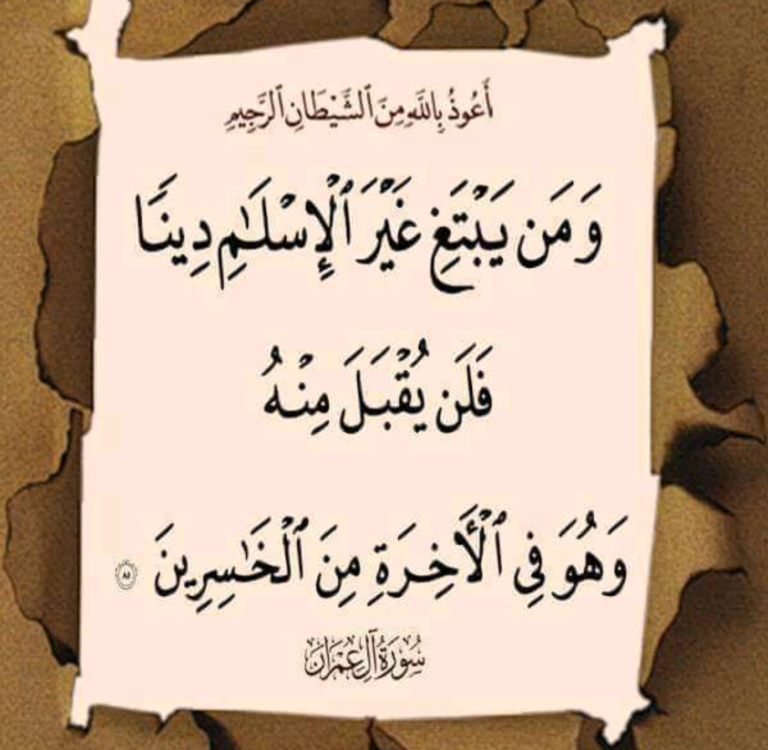 أَعُوذُ بِاللَّهِ مِنَ ٱلشَّيْطَانِ ٱلرَّجِيمِ
وَمَن يَبْتَغِ غَيْرَ ٱلْإِسْلَٰمِ دِينًا
فَلَن يُقْبَلَ مِنْهُ
وَهُوَ فِى ٱلْأَخِرَةِ مِنَ ٱلْخَٰسِرِينَ ٨٥
سُورَةُ آلِ عِمْرَانَ